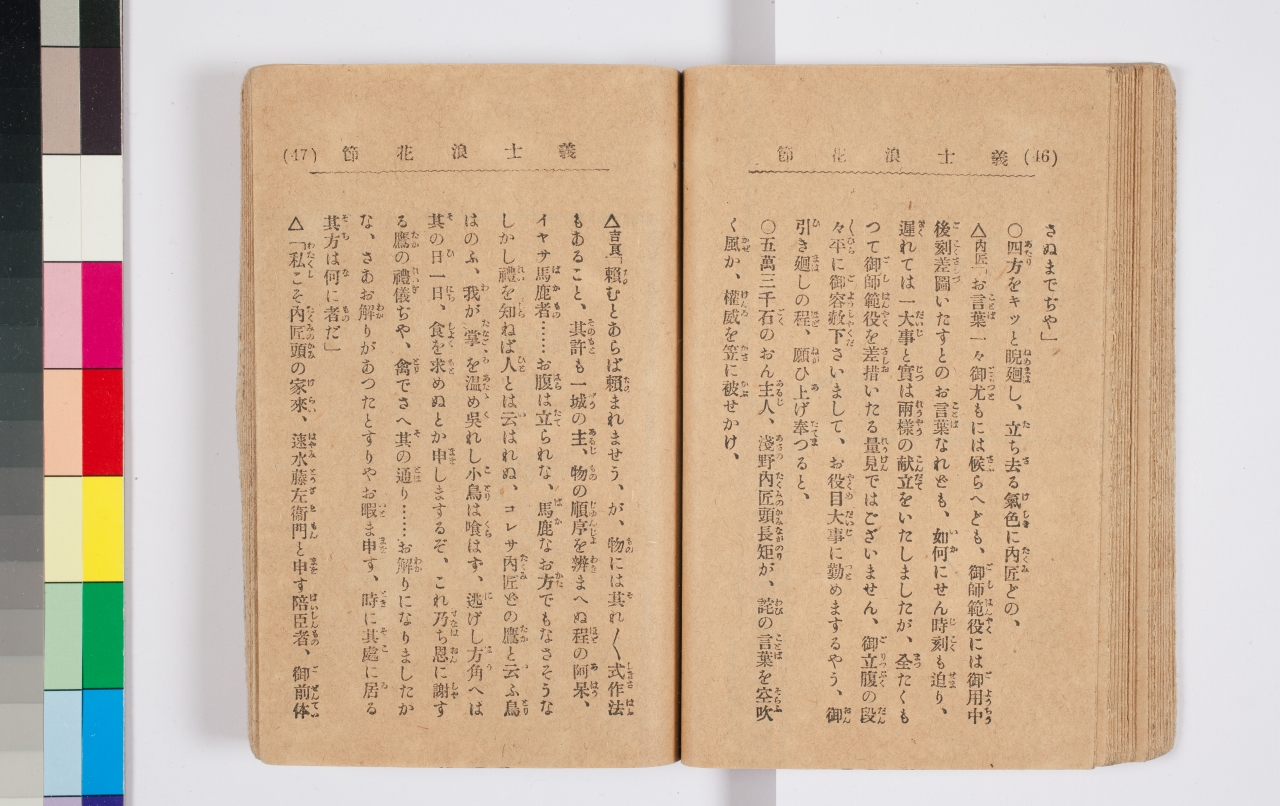 義士浪花節 (46)
さぬまでぢや」
○四方をキッと睨廻し、立ち去る氣色に內匠どの、
△內匠「お言葉一々御尤もには候らへども、御師範役には御用中
後刻差圖いたすとのお言葉なれども、如何にせん時刻も迫り、
遲れては一大事と實は兩樣の献立をいたしましたが、全たくも
つて御師範役を差措いたる量見ではございません、御立腹の段
々平に御容赦下さいまして、お役目大事に勤めまするやう、御
引き廻しの程、願ひ上げ奉つると、
○五萬三千石のおん主人、淺野內匠頭長矩が、詫の言葉を空吹
く風か、權威を笠に被せかけ、
義士浪花節 (47)
△吉良「賴むとあらば賴まれませう、が、物には其れ〱式作法
もあること、其許も一城の主、物の順序を辨まへぬ程の阿呆、
イヤサ馬鹿者……お腹は立られな、馬鹿なお方でもなさそうな
しかし禮を知ねば人とは云はれぬ、コレサ內匠どの鷹と云ふ鳥
はのふ、我が掌を温め吳れし小鳥は喰はず、逃げし方角へは
其の日一日、食を求めぬとか申しまするぞ、これ乃ち恩に謝す
る鷹の禮儀ぢや、禽でさへ其の通り……お解りになりましたか
な、さあお解りがあつたとすりやお暇ま申す、時に其處に居る
其方は何に者だ」
△「私こそ內匠頭の家來、速水藤左衞門と申す陪臣者、御前体